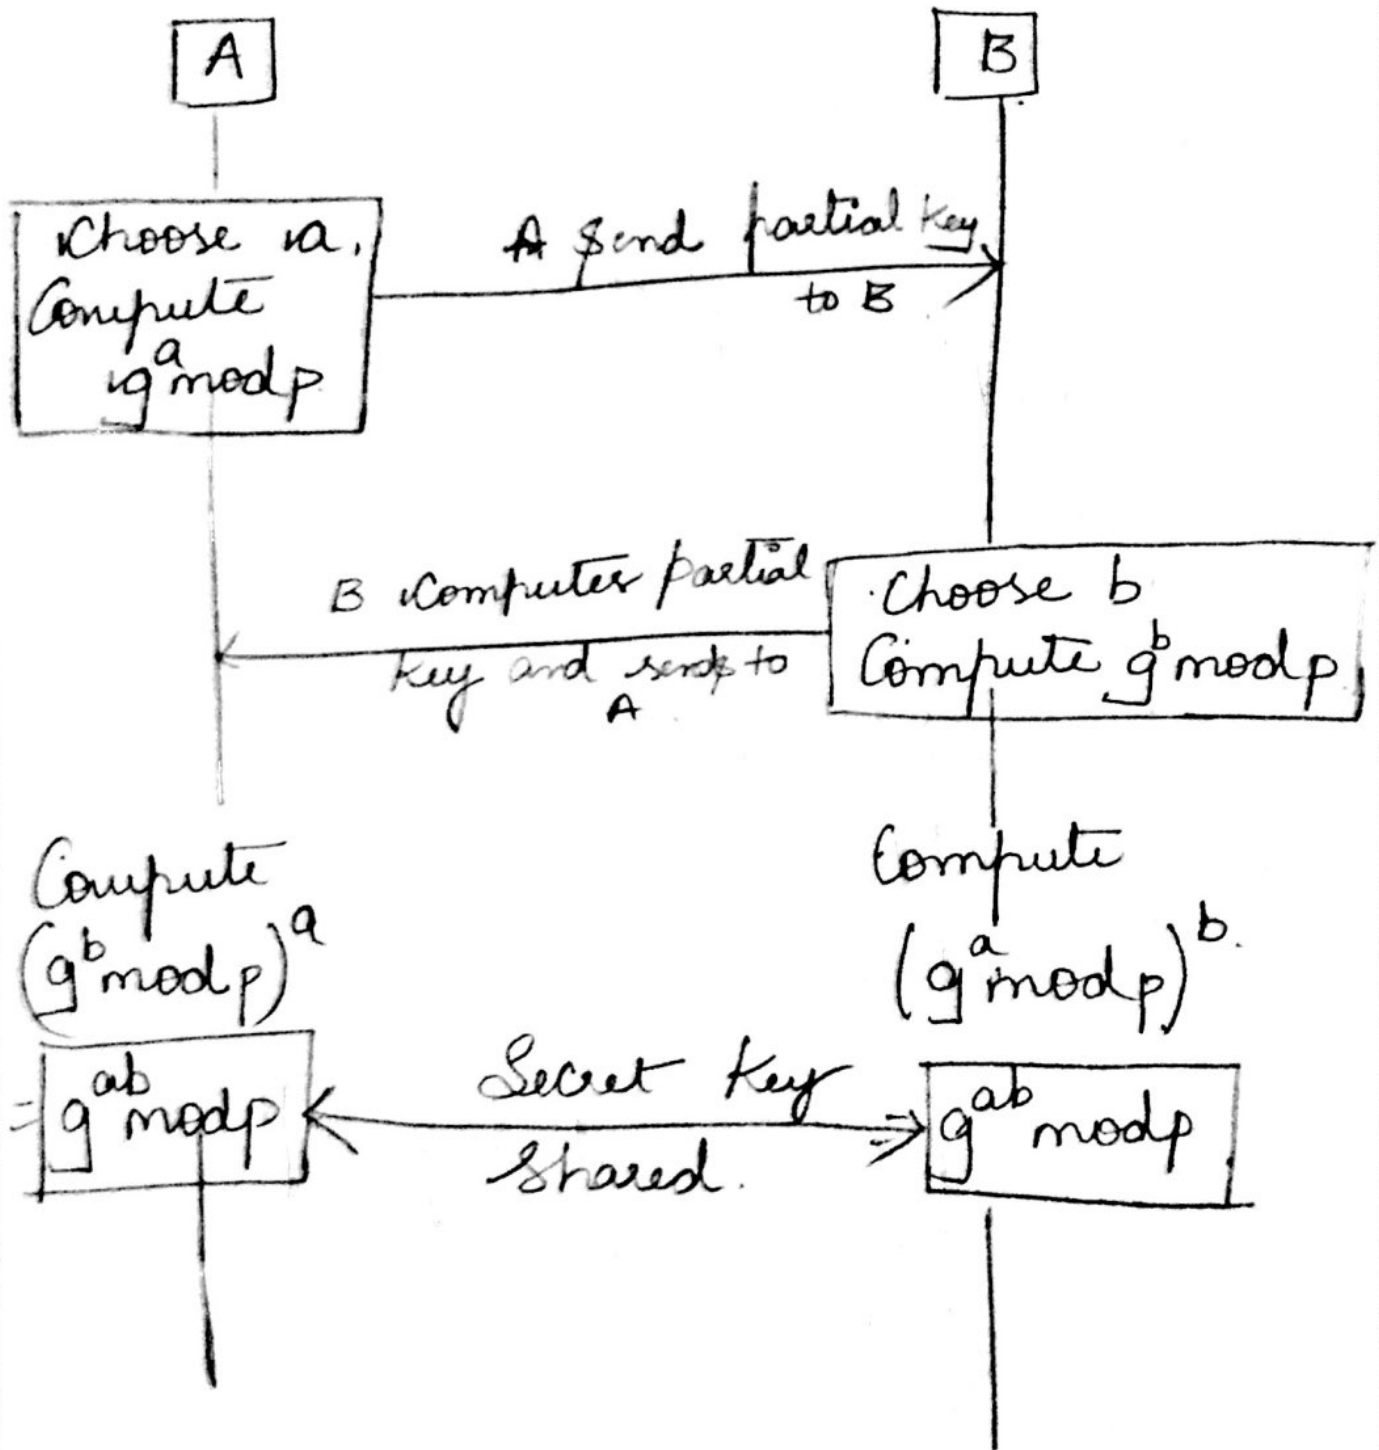 A
B
Choose a.
Compute
g^a mod p
A send partial key
to B
B Computes partial
key and sends to
A
Choose b
Compute g^b mod p
Compute
(g^b mod p)^a
= g^ab mod p
Compute
(g^a mod p)^b.
Secret key
Shared.
g^ab mod p